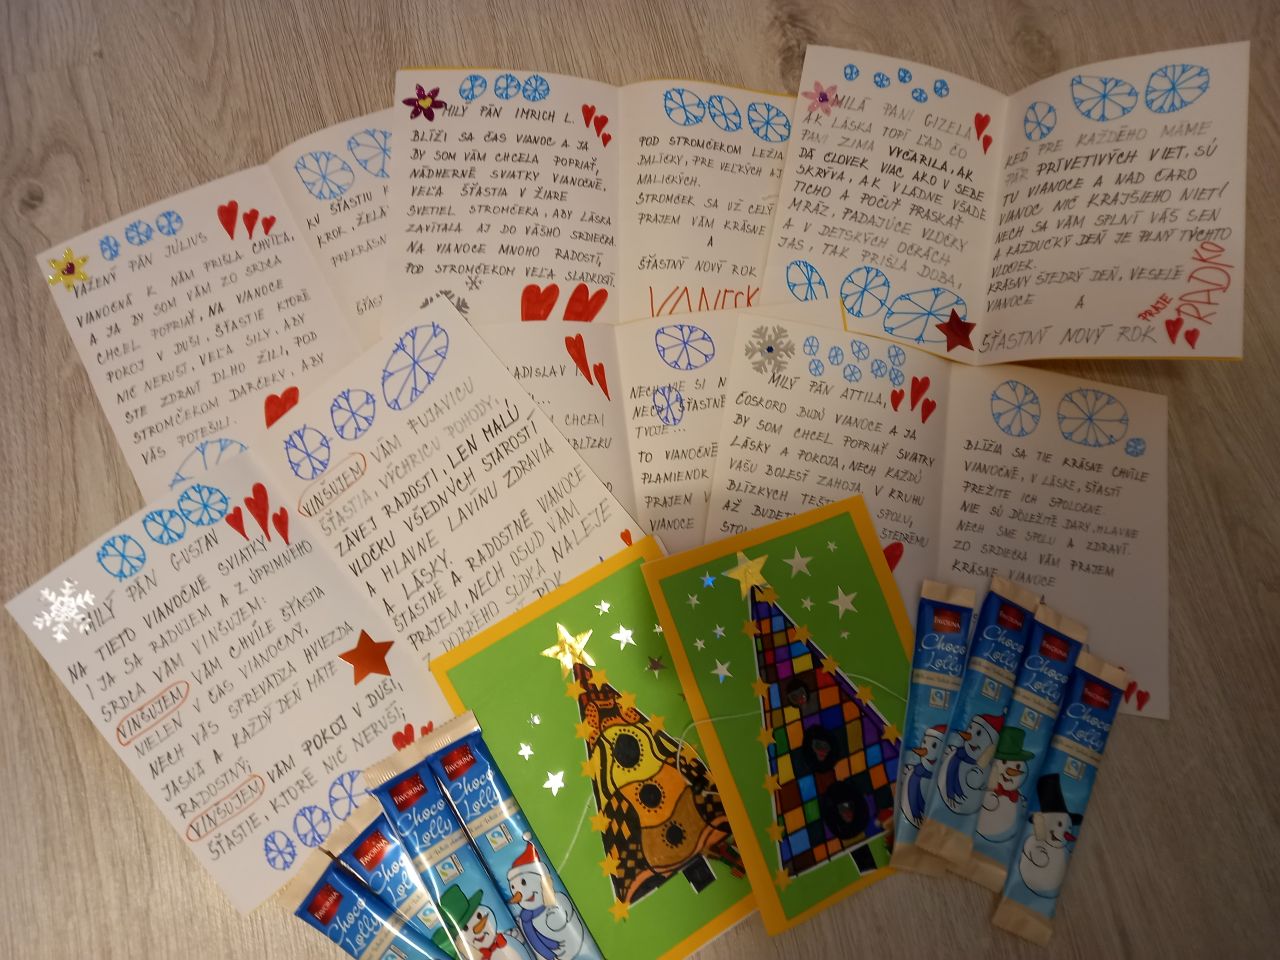 VÁŽENÝ PÁN JÚLIUS
VIANOČNÁ K NÁM PRIŠLA CHVÍĽA,
A JA BY SOM VÁM ZO SRDCA
CHCEL POPRIAŤ, NA VIANOCE
POKOJ V DUŠI, ŠŤASTIE KTORÉ
NIČ NERUŠÍ, VEĽA SILY, ABY
STE ZDRAVÍ DLHO ŽILI, POD
STROMČEKOM DARČEKY, ABY
VÁS POTEŠILI.
KU ŠŤASTIU
KROK, ŽELÁ
PREKRÁSN
ŠŤAS
MILÝ PÁN IMRICH L.
BLÍŽI SA ČAS VIANOC A JA
BY SOM VÁM CHCELA POPRIAŤ,
NÁDHERNÉ SVIATKY VIANOČNÉ.
VEĽA ŠŤASTIA V ŽIARE
SVETIEL STROMČEKA, ABY LÁSKA
ZAVÍTALA AJ DO VÁŠHO SRDIEČKA.
NA VIANOCE MNOHO RADOSTÍ,
POD STROMČEKOM VEĽA SLADKOSTÍ.
POD STROMČEKOM LEŽIA
BALÍČKY, PRE VEĽKÝCH AJ
MALIČKÝCH.
STROMČEK SA UŽ CELÝ
PRAJEM VÁM KRÁSNE
A
ŠŤASTNÝ NOVÝ ROK
MILÁ PANI GIZELA
AK LÁSKA TOPÍ ĽAD ČO
PANI ZIMA VYČARILA, AK
DÁ ČLOVEK VIAC AKO V SEBE
SKRÝVA, AK VLÁDNE VŠADE
TICHO A POČUŤ PRASKAŤ
MRÁZ, PADAJÚCE VLOČKY
A V DETSKÝCH OČKÁCH
JAS, TAK PRIŠLA DOBA,
KEĎ PRE KAŽDÉHO MÁME
PÁR PRÍVETIVÝCH VIET, SÚ
TU VIANOCE A NAD ČARO
VIANOC NIČ KRAJŠIEHO NIET!
NECH SA VÁM SPLNÍ VÁŠ SEN
A KAŽDUČKÝ DEŇ JE PLNÝ TÝCHTO
VLOČIEK.
KRÁSNY ŠTEDRÝ DEŇ, VESELÉ
VIANOCE A
ŠŤASTNÝ NOVÝ ROK
PRAJE
RADKO
ADISLAV
CHCEM
BLÍZKU
NECH
TVOJE...
TO VIANOČNÉ
PLAMIENOK
PRAJEM V
VIANOCE
MILÝ PÁN ATTILA,
ČOSKORO BUDÚ VIANOCE A JA
BY SOM CHCEL POPRIAŤ SVIATKY
LÁSKY A POKOJA, NECH KAŽDÚ
VAŠU BOLESŤ ZAHOJA, V KRUHU
BLÍZKYCH
SPOLU,
AŽ BUDETE
ŠTEDRÉMU
STOL
BLÍŽIA SA TIE KRÁSNE CHVÍLE
VIANOČNÉ, V LÁSKE, ŠŤASTÍ
PREŽITE ICH SPOLOČNE.
NIE SÚ DÔLEŽITÉ DARY, HLAVNE
NECH SME SPOLU A ZDRAVÍ.
ZO SRDIEČKA VÁM PRAJEM
KRÁSNE VIANOCE
MILÝ PÁN GUSTAV
NA TIETO VIANOČNÉ SVIATKY
I JA SA RADUJEM A Z ÚPRIMNÉHO
SRDCA VÁM VINŠUJEM:
VINŠUJEM VÁM CHVÍLE ŠŤASTIA
NIELEN V ČAS VIANOČNÝ,
NECH VÁS SPREVÁDZA HVIEZDA
JASNÁ A KAŽDÝ DEŇ MÁTE
RADOSTNÝ;
VINŠUJEM VÁM POKOJ V DUŠI,
ŠŤASTIE, KTORÉ NIČ NERUŠÍ;
VINŠUJEM VÁM FUJAVICU
ŠŤASTIA, VÝCHRICU POHODY,
ZÁVEJ RADOSTI, LEN MALÚ
VLOČKU VŠEDNÝCH STAROSTÍ
A HLAVNE LAVÍNU ZDRAVIA
A LÁSKY.
ŠŤASTNÉ A RADOSTNÉ VIANOCE
PRAJEM, NECH OSUD VÁM
Z DOBRÉHO SÚDKA NALEJE
FAVORINA
Choco
Lolly
FAVORINA
Choco
Lolly
FAVORINA
Choco
Lolly
FAVORINA
Choco
Lolly
FAVORINA
Choco
Lolly
FAVORINA
Choco
Lolly
FAVORINA
Choco
Lolly
FAVORINA
Choco
Lolly